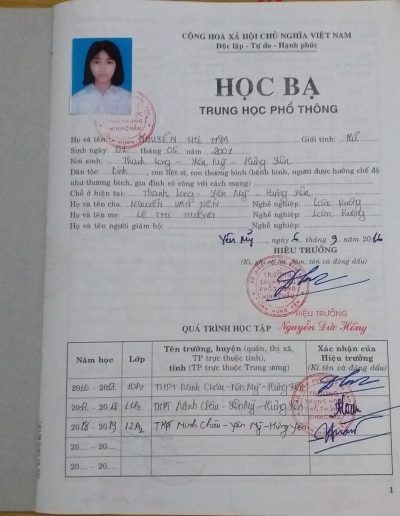 CỘNG HOÀ XÃ HỘI CHỦ NGHĨA VIỆT NAM
Độc lập - Tự do - Hạnh phúc
HỌC BẠ
TRUNG HỌC PHỔ THÔNG
Họ và tên: NGUYỄN THỊ Giới tính: Nữ
Sinh ngày 01 tháng 05 năm 2001
Nơi sinh: Thanh Long - Yên Mỹ - Hưng Yên
Dân tộc: Kinh, con liệt sĩ, con thương binh (bệnh binh, người được hưởng chế độ
như thương binh, gia đình có công với cách mạng)
Chỗ ở hiện tại: Thanh Long - Yên Mỹ - Hưng Yên
Họ và tên cha: NGUYỄN VĂN Nghề nghiệp: Làm Ruộng
Họ và tên mẹ: LÊ THỊ Nghề nghiệp: Làm Ruộng
Họ và tên người giám hộ: Nghề nghiệp:
Yên Mỹ, ngày 5 tháng 9 năm 2016
HIỆU TRƯỞNG
(Kí, ghi rõ họ, đệm, tên và đóng dấu)
TRƯỜNG
TRUNG HỌC
PHỔ THÔNG
MINH CHÂU
HIỆU TRƯỞNG
Nguyễn Đức Hồng
QUÁ TRÌNH HỌC TẬP
Năm học Lớp Tên trường, huyện (quận, thị xã, TP trực thuộc tỉnh), tỉnh (TP trực thuộc Trung ương) Xác nhận của Hiệu trưởng (Kí tên và đóng dấu)
2016 - 2017 THPT Minh Châu - Yên Mỹ - Hưng Yên
2017 - 2018 THPT Minh Châu - Yên Mỹ - Hưng Yên
2018 - 2019 12A2 THPT Minh Châu - Yên Mỹ - Hưng Yên
20.... - 20....
20.... - 20....
1